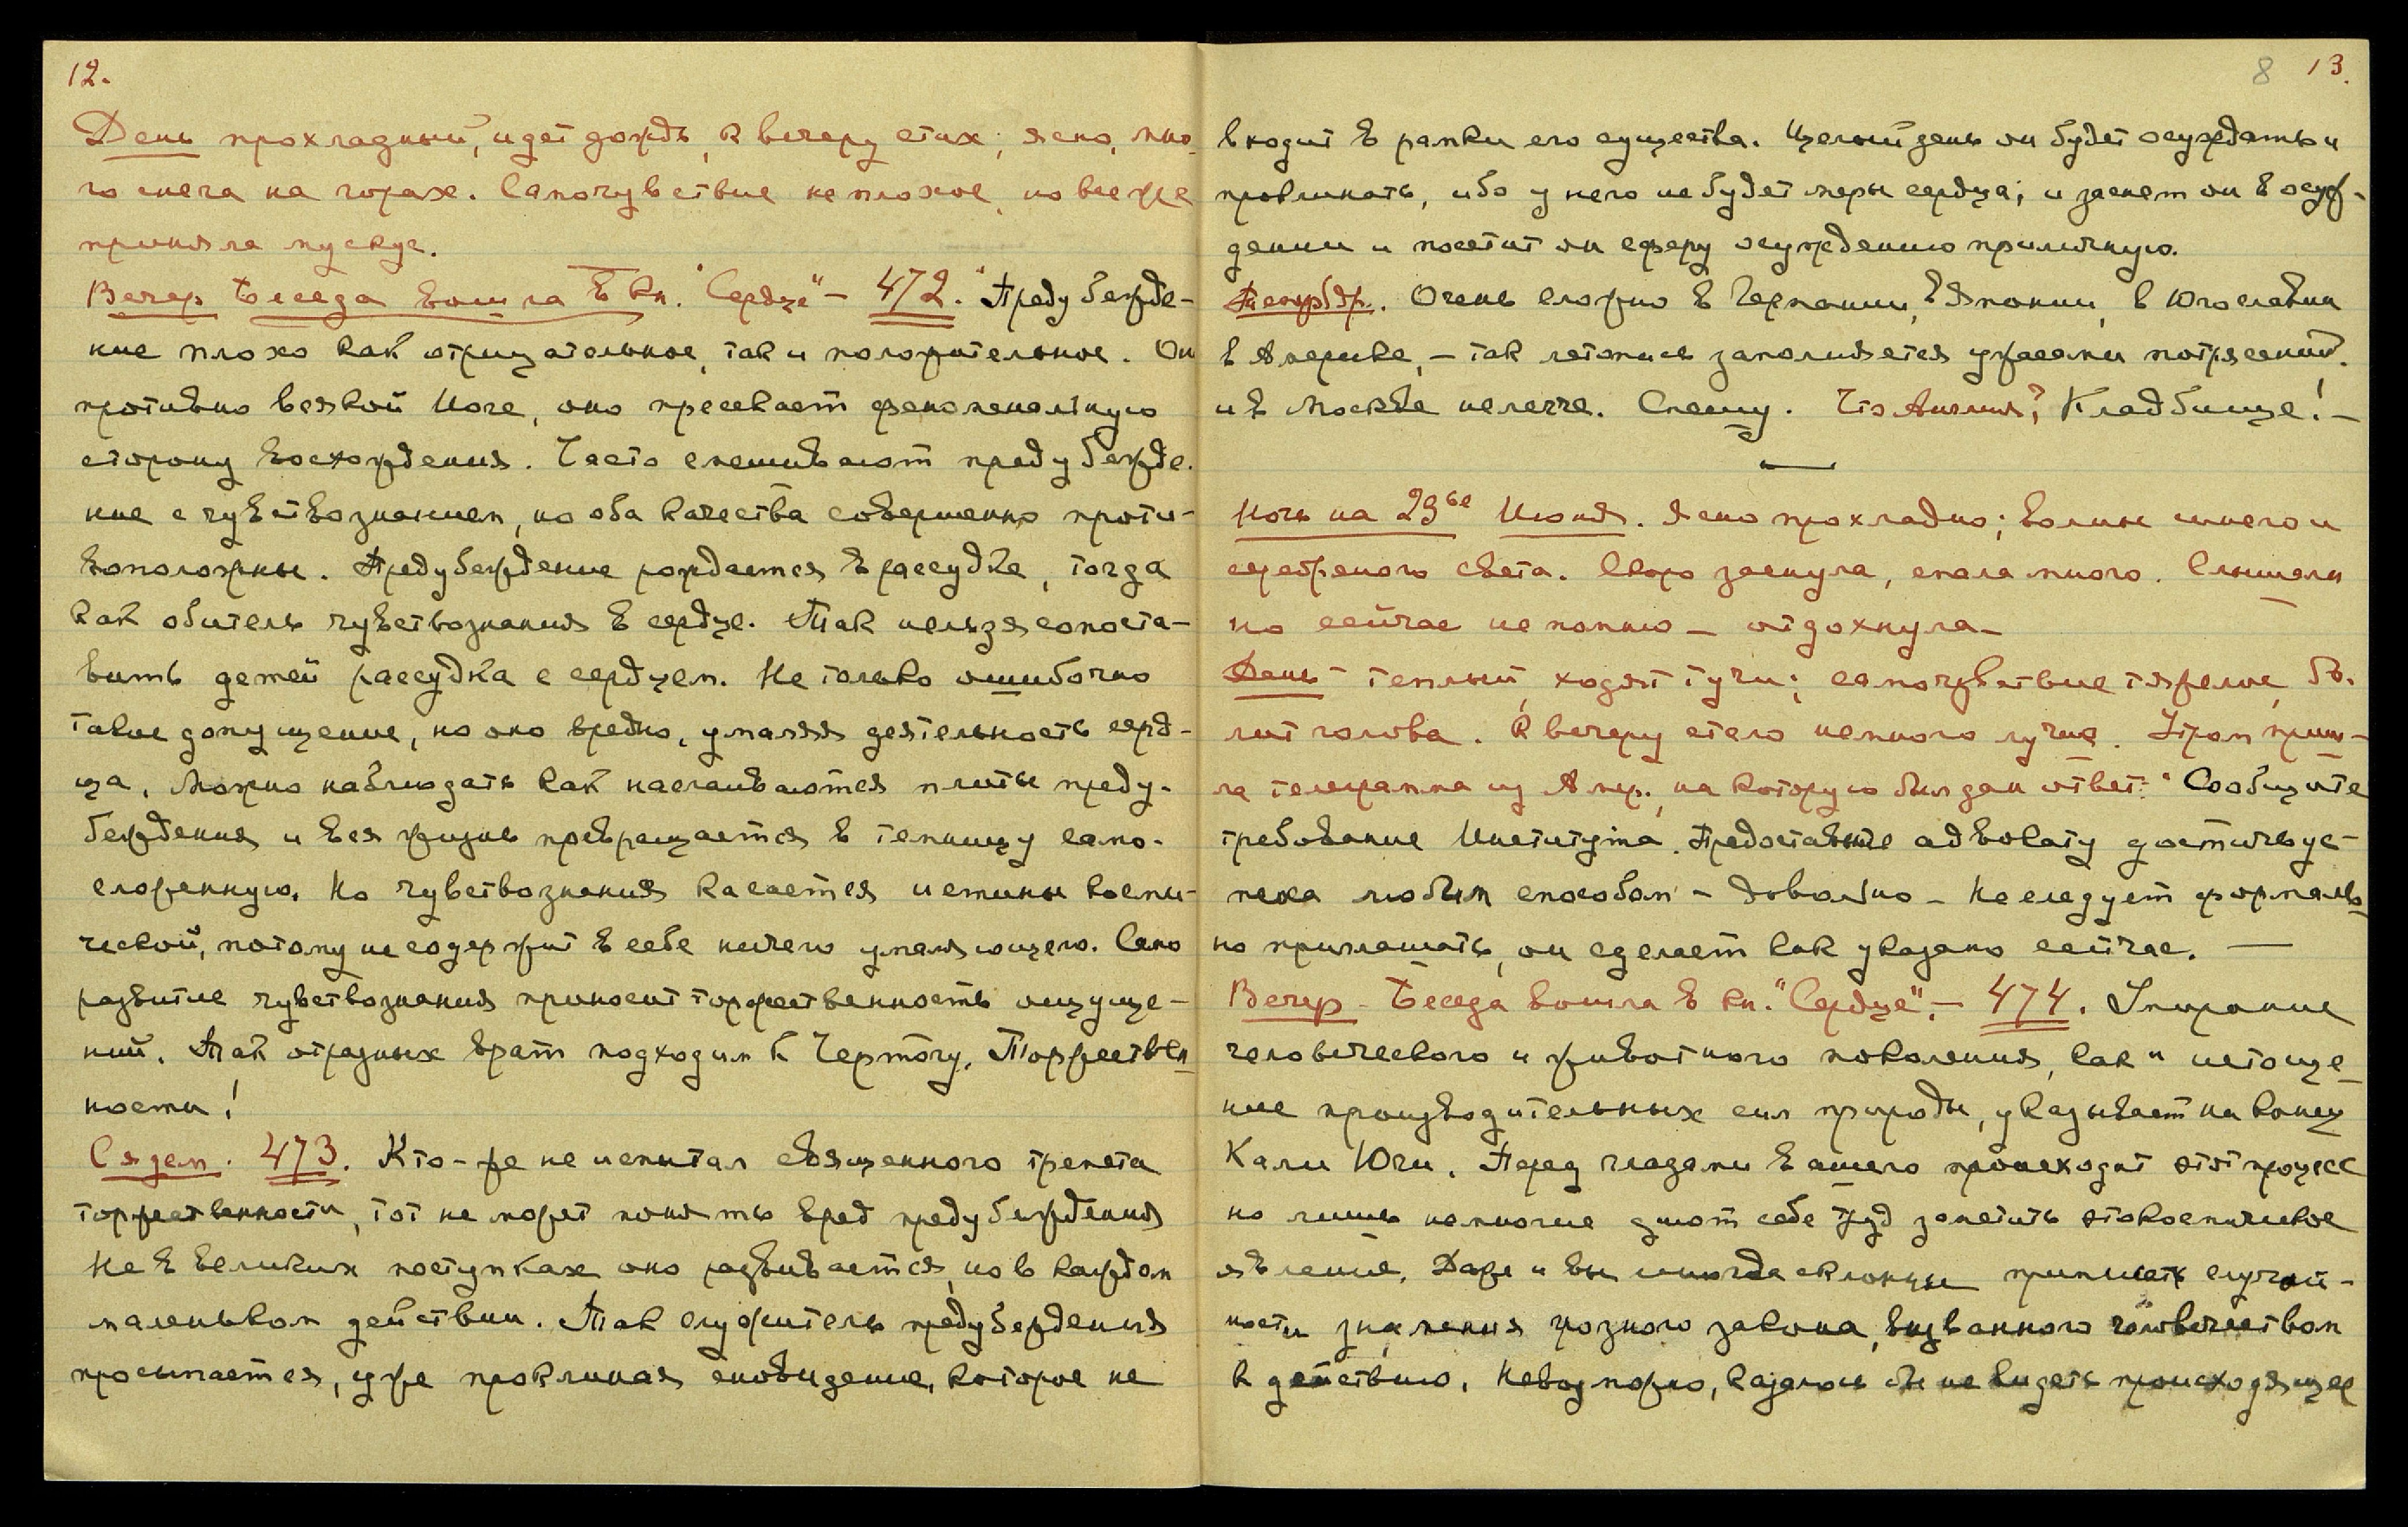 12.
День прохладный, идет дождь, к вечеру стих; ясно, мно-
го снега на горах. Самочувствие не плохое, но все же
приняла мускус.
Вечер Беседа вошла в кн. "Сердце" – 472. "Предубежде-
ние плохо как отрицательное, так и положительное. Он
противно всякой Йоге, оно пресекает феноменальную
сторону восхождения. Часто смешивают предубежде-
ние с чувствознанием, но оба качества совершенно проти-
воположны. Предубеждение рождается в рассудке, тогда
как обитель чувствознания в сердце. Так нельзя сопоста-
вить детей рассудка с сердцем. Не только ошибочно
такое допущение, но оно вредно, умаляя деятельность серд-
ца. Можно наблюдать как наслаиваются плиты преду-
беждения и вся жизнь превращается в темницу само-
сложенную. Но чувствознания касается истины косми-
ческой, потому не содержит в себе ничего умаляющего. Само
развитие чувствознания приносит торжественность ощуще-
ний. Так отрадных врат подходим к Чертогу. Торжествен
ности!
Сядем. 473. Кто-же не испытал священного трепета
торжественности, тот не может понять вред предубеждения
Не в великих поступках оно развивается, но в каждом
маленьком действии. Так служитель предубеждения
просыпается, уже проклиная сновидение, которое не
8 13.
входит в рамки его существа. Целый день он будет осуждать и
проклинать, ибо у него не будет меры сердца; и заснет он в осуж-
дении и посетит он сферу осуждению приличную.
Очень сложно в Германии, в Японии, в Югославии
в Америке, – так летопись заполняется ужасами потрясений.
и в Москве не легче. Спешу. Что Англия? Кладбище! –
Ночь на 23ье Июня. Ясно прохладно; волны синего и
серебряного света. Скоро заснула, спала много. Слышали
но сейчас не помню – отдохнула –
День – теплый, ходят тучи; самочувствие тяжелое, бо-
лит голова. К вечеру стало немного лучше. Утром приш-
ла телеграмма из Амер., на которую был дан ответ: "Сообщите
требование Института. Предоставьте адвокату достичь ус-
пеха любым способом – довольно – Не следует формаль-
но приглашать, он сделает как указано сейчас. –
Вечер – Беседа вошла в кн. "Сердце". – 474. Умирание
человеческого и животного поколения, как и истоще-
ние производительных сил природы, указывает на конец
Кали Юги. Перед глазами вашего происходит этот процесс
но лишь немногие дают себе труд заметить это космическое
явление. Даже и вы иногда склонны приписать случай-
ности знамения грозного закона, вызванного человечеством
к действию. Невозможно, казалось бы не видеть происходящее